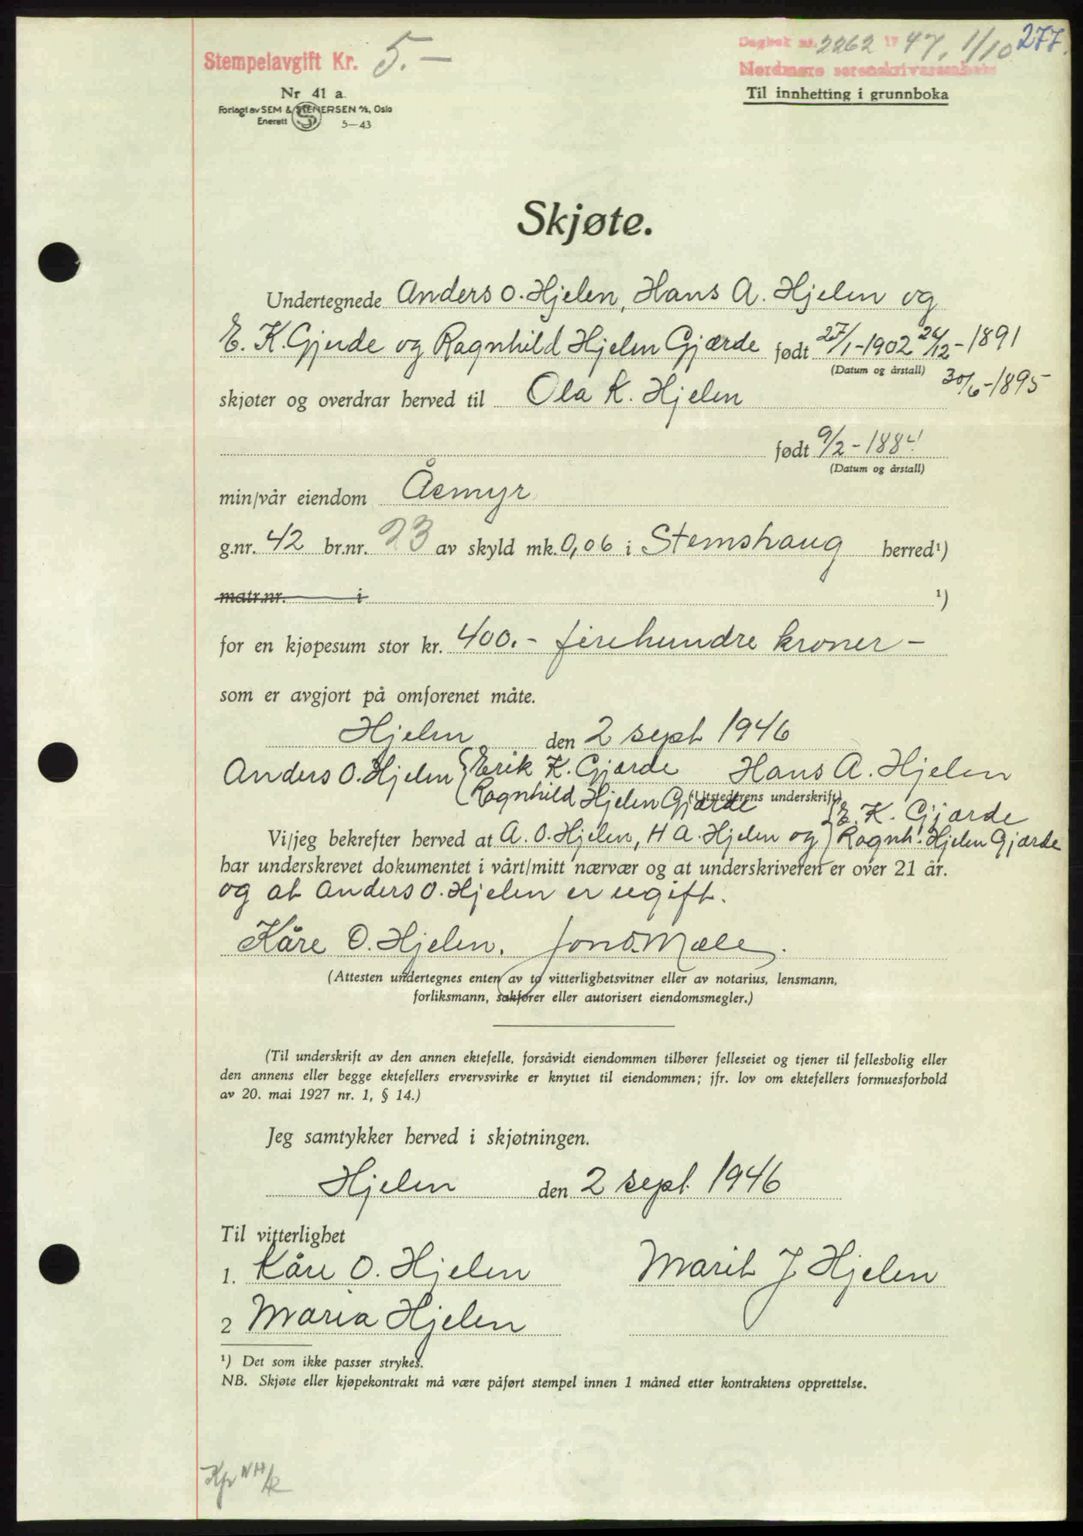 Stempelavgift Kr. 5.—
Dagbok nr. 2262 19 47, 1/10 277.
Nordmøre sorenskriverembete
Nr 41 a.
Til innhefting i grunnboka
Forlagt av SEM & STENERSEN A/S, Oslo
Enerett S 5—43
Skjøte.
Undertegnede Anders O. Hjelen, Hans A. Hjelen og
E. K. Gjærde og Ragnhild Hjelen Gjærde født 27/1-1902 24/12-1891
(Datum og årstall) 30/6-1895
skjøter og overdrar herved til Ola K. Hjelen
født 9/2-1884
(Datum og årstall)
min/vår eiendom Åsmyr
g.nr. 42 br.nr. 23 av skyld mk. 0,06 i Stemshaug herred¹)
matr.nr. i ¹)
for en kjøpesum stor kr. 400.- firehundre kroner —
som er avgjort på omforenet måte.
Hjelen den 2 sept 1946
Anders O. Hjelen { Erik K. Gjærde Hans A. Hjelen
Ragnhild Hjelen Gjærde (Utstederens underskrift)
{ E. K. Gjærde
Vi/jeg bekrefter herved at A. O. Hjelen, H A. Hjelen og Ragnh. Hjelen Gjærde
har underskrevet dokumentet i vårt/mitt nærvær og at underskriveren er over 21 år.
og at Anders O. Hjelen er ugift.
Kåre O. Hjelen. Jon O. Mæle.
(Attesten undertegnes enten av to vitterlighetsvitner eller av notarius, lensmann,
forliksmann, sakfører eller autorisert eiendomsmegler.)
(Til underskrift av den annen ektefelle, forsåvidt eiendommen tilhører felleseiet og tjener til fellesbolig eller
den annens eller begge ektefellers ervervsvirke er knyttet til eiendommen; jfr. lov om ektefellers formuesforhold
av 20. mai 1927 nr. 1, § 14.)
Jeg samtykker herved i skjøtningen.
Hjelen den 2 sept. 1946
Til vitterlighet
1. Kåre O. Hjelen Marit J Hjelen
2 Maria Hjelen
¹) Det som ikke passer strykes.
NB. Skjøte eller kjøpekontrakt må være påført stempel innen 1 måned etter kontraktens opprettelse.